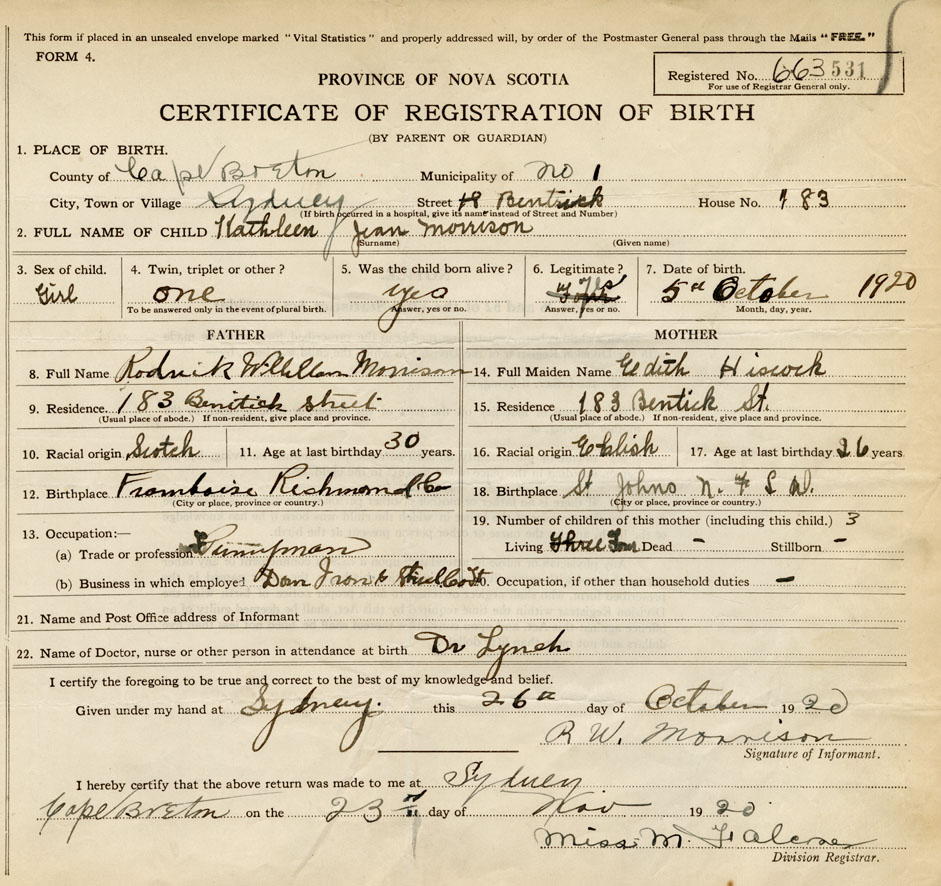 This form if placed in an unsealed envelope marked "Vital Statistics" and properly addressed will, by order of the Postmaster General pass through the Mails "FREE."
FORM 4.
PROVINCE OF NOVA SCOTIA
Registered No. 663 531
For use of Registrar General only.
CERTIFICATE OF REGISTRATION OF BIRTH
(BY PARENT OR GUARDIAN)
1. PLACE OF BIRTH.
County of Cape Breton Municipality of No 1
City, Town or Village Sydney Street Bentick House No. 183
(If birth occurred in a hospital, give its name instead of Street and Number)
2. FULL NAME OF CHILD Kathleen Jean Morrison
(Surname) (Given name)
3. Sex of child. 4. Twin, triplet or other? 5. Was the child born alive? 6. Legitimate? 7. Date of birth.
Girl one yes Yes 5th October 1920
To be answered only in the event of plural birth. Answer, yes or no. Answer, yes or no. Month, day, year.
FATHER MOTHER
8. Full Name Rodrick William Morrison 14. Full Maiden Name Edith Hiscock
9. Residence. 183 Bentick Street 15. Residence 183 Bentick St.
(Usual place of abode.) If non-resident, give place and province. (Usual place of abode.) If non-resident, give place and province.
10. Racial origin Scotch 11. Age at last birthday 30 years. 16. Racial origin 17. Age at last birthday 26 years
12. Birthplace Framboise Richmond Co 18. Birthplace St Johns N. F L D.
(City or place, province or country.) (City or place, province or country.)
13. Occupation:— 19. Number of children of this mother (including this child.) 3
(a) Trade or profession Living Three Dead - Stillborn -
(b) Business in which employed Dom Iron & Steel Co Ltd 20. Occupation, if other than household duties -
21. Name and Post Office address of Informant
22. Name of Doctor, nurse or other person in attendance at birth Dr Lynch
I certify the foregoing to be true and correct to the best of my knowledge and belief.
Given under my hand at Sydney. this 26th day of October 1920
R W. Morrison
Signature of Informant.
I hereby certify that the above return was made to me at Sydney
Cape Breton on the 23rd day of Nov 1920
Miss M.
Division Registrar.